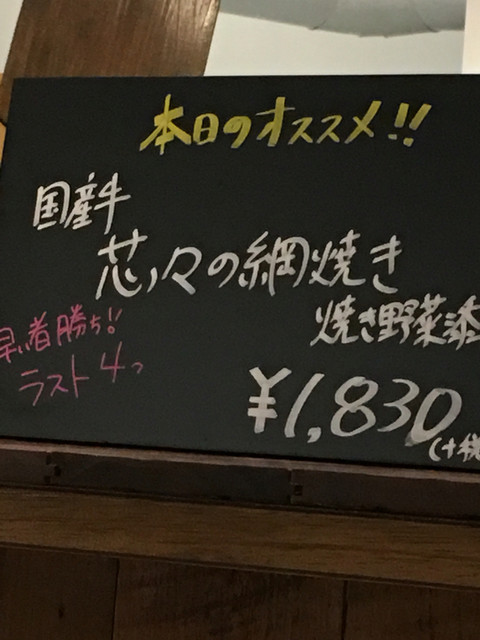 本日のオススメ!!
国産牛
芯々の網焼き
焼き野菜添
早い者勝ち!!
ラスト4つ
¥1,830
(+税